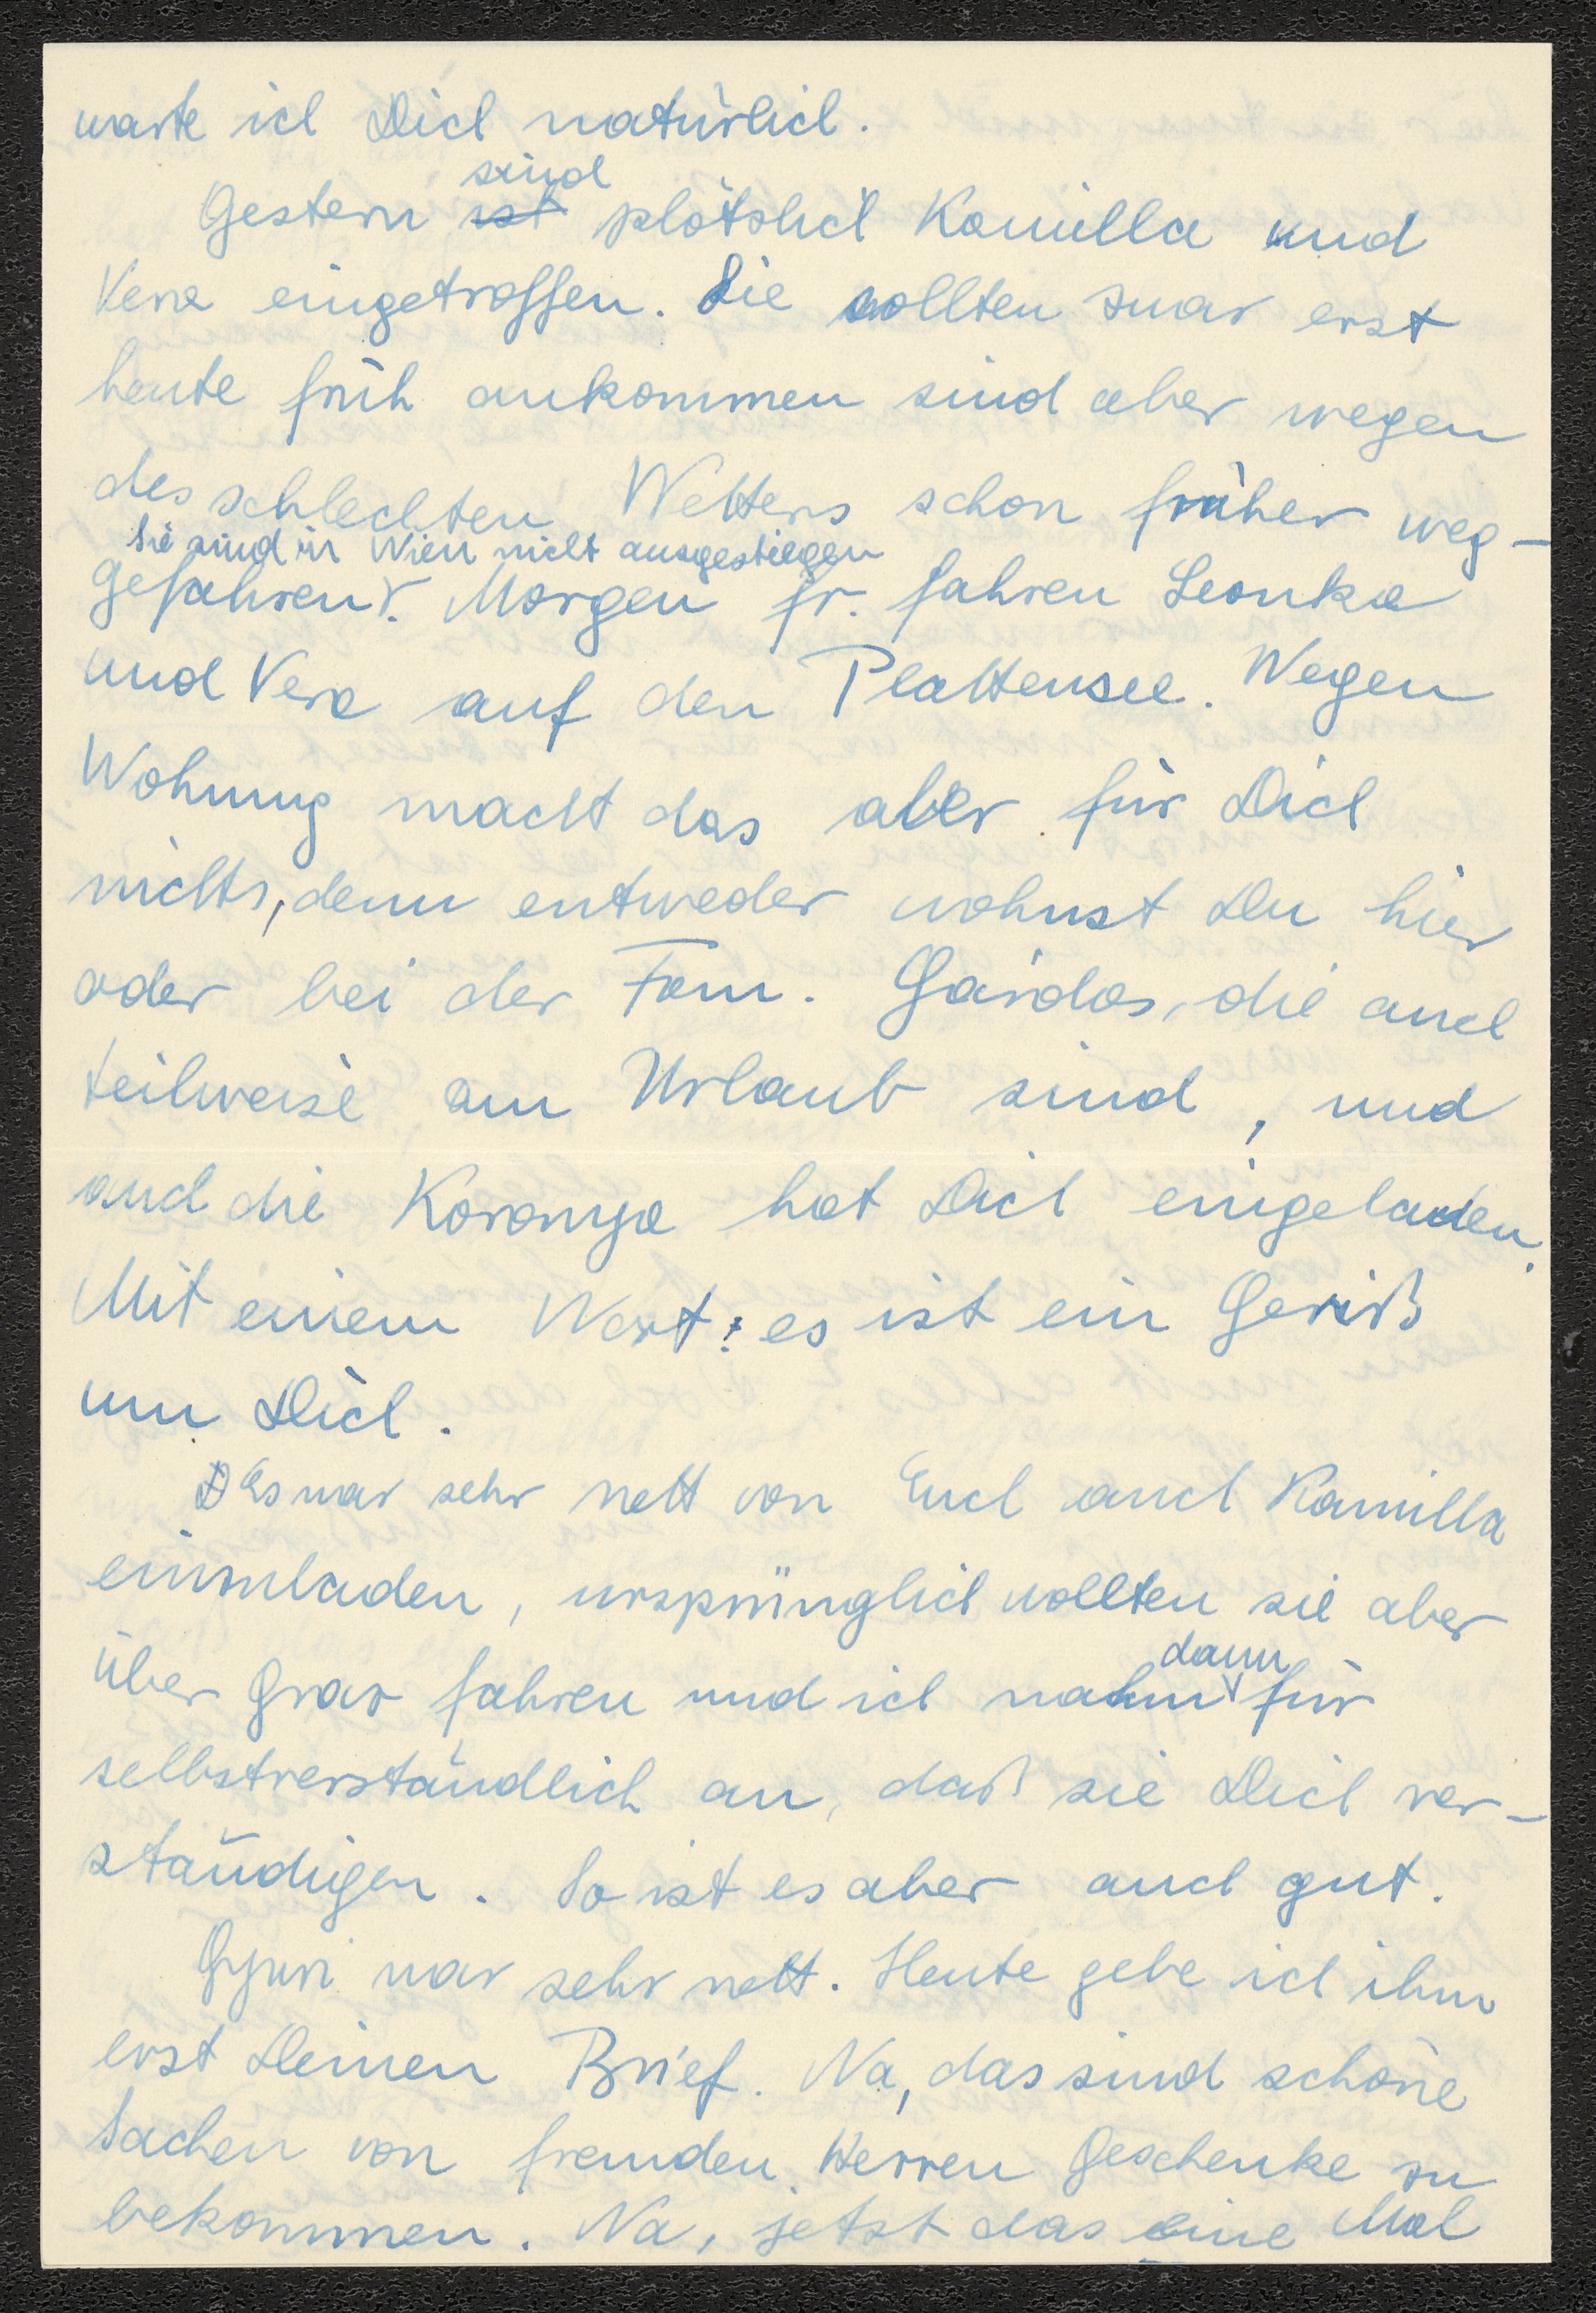 warte ich Dich natürlich.
sind
Gestern ist plötzlich Kamilla und
Vera eingetroffen. Sie wollten zwar erst
heute früh ankommen sind aber wegen
des schlechten Wetters schon früher weg-
Sie sind in Wien nicht ausgestiegen
gefahren. Morgen fr. fahren Leonka
und Vera auf den Plattensee. Wegen
Wohnung macht das aber für Dich
nichts, denn entweder wohnst Du hier
oder bei der Fam. Gárdos, die auch
teilweise am Urlaub sind, und
auch die Koronya hat Dich eingeladen.
Mit einem Wort: es ist ein Geriß
um Dich.
Es war sehr nett von Euch auch Kamilla
einzuladen, ursprünglich wollten sie aber
dann
über Graz fahren und ich nahm für
selbstverständlich an, daß sie Dich ver-
ständigen. So ist es aber auch gut.
Gyuri war sehr nett. Heute gebe ich ihm
erst Deinen Brief. Na, das sind schöne
Sachen von fremden Herren Geschenke zu
bekommen. Na, jetzt das eine Mal